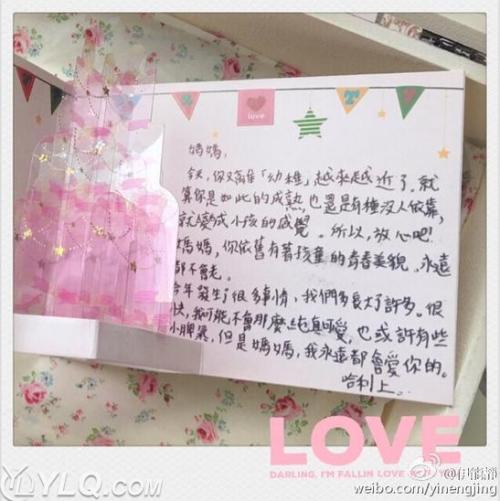 love
媽媽，
今天，你又離「幼稚」越來越近了。就
算你是如此的成熟也還是有種沒人依靠，
就變成小孩的感覺。所以，放心吧
媽媽，你依舊有著孩童的青春美貌。永遠
都不會老。
今年發生了很多事情，我們都長大了許多。很
快，我可能不會那麼純真可愛，也或許有些
小脾氣，但是媽媽，我永遠都會愛你的。
哈利上。
LOVE
DARLING, I'M FALLIN LOVE
YLQ.com
@伊能静
weibo.com/yinengjing